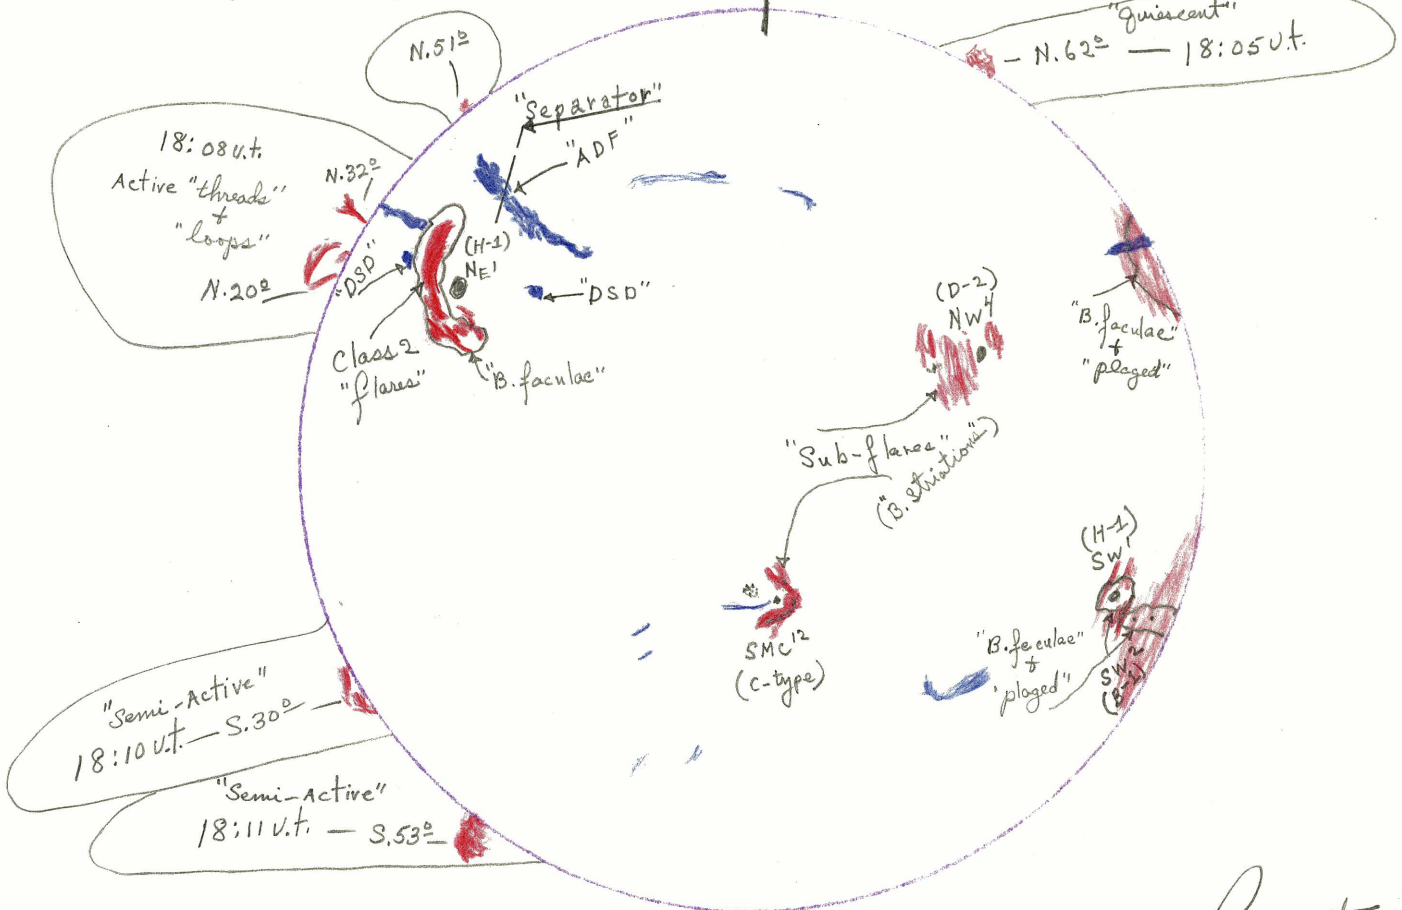 "Quiescent"
— N.62º — 18:05 U.t.
N.51º
"Separator"
"ADF"
18:08 U.t.
Active "threads"
+
"loops"
N.32º
N.20º
"DSD"
(H-1)
NE1
"DSD"
Class 2
"flares"
"B.faculae"
(D-2)
NW4
"B.faculae"
+
"plaged"
"Sub-flares"
("B.Striations")
(H-1)
SW1
SMC12
(C-type)
"B.feculae"
+
'plaged"
SW2
(B-1)
"Semi-Active"
18:10 U.t. — S.30º —
"Semi-Active"
18:11 U.t. — S.53º —